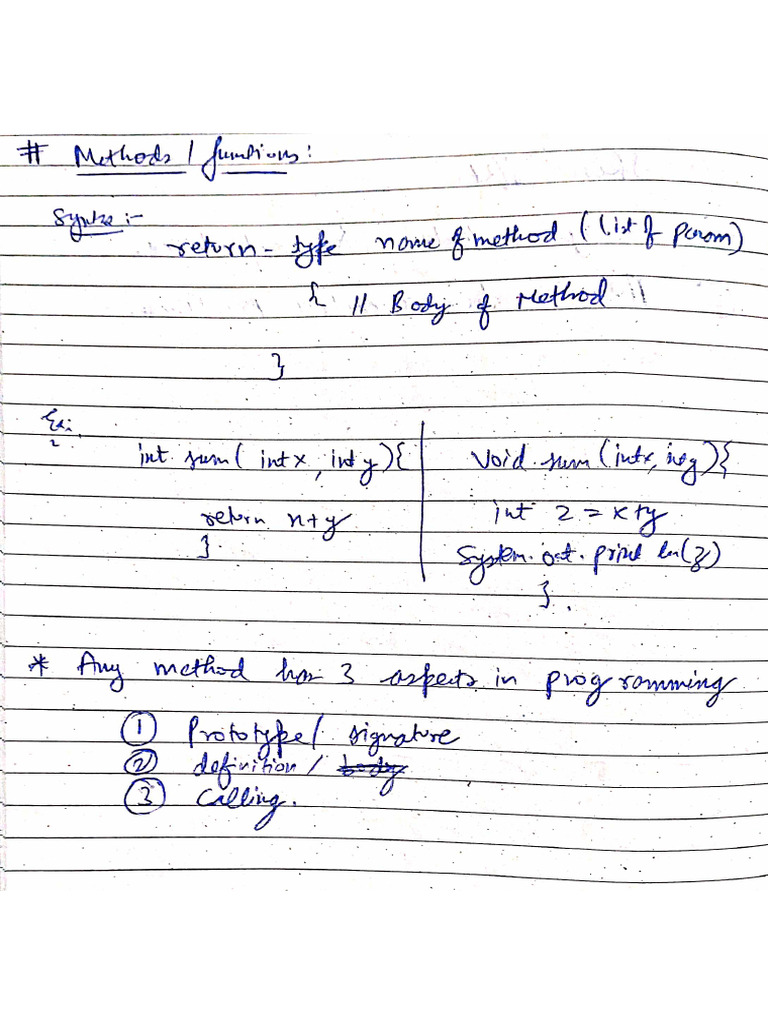 # Methods / functions:
Syntax :-
return-type name of method (List of param)
{ // Body of Method //
}
Ex:
int sum( int x, int y){
return x+y
}.
Void sum (int x, int y){
int z = x+y
System.out.println(z)
}.
* Any method has 3 aspects in programming
① Prototype/ signature
② definition / body
③ Calling.